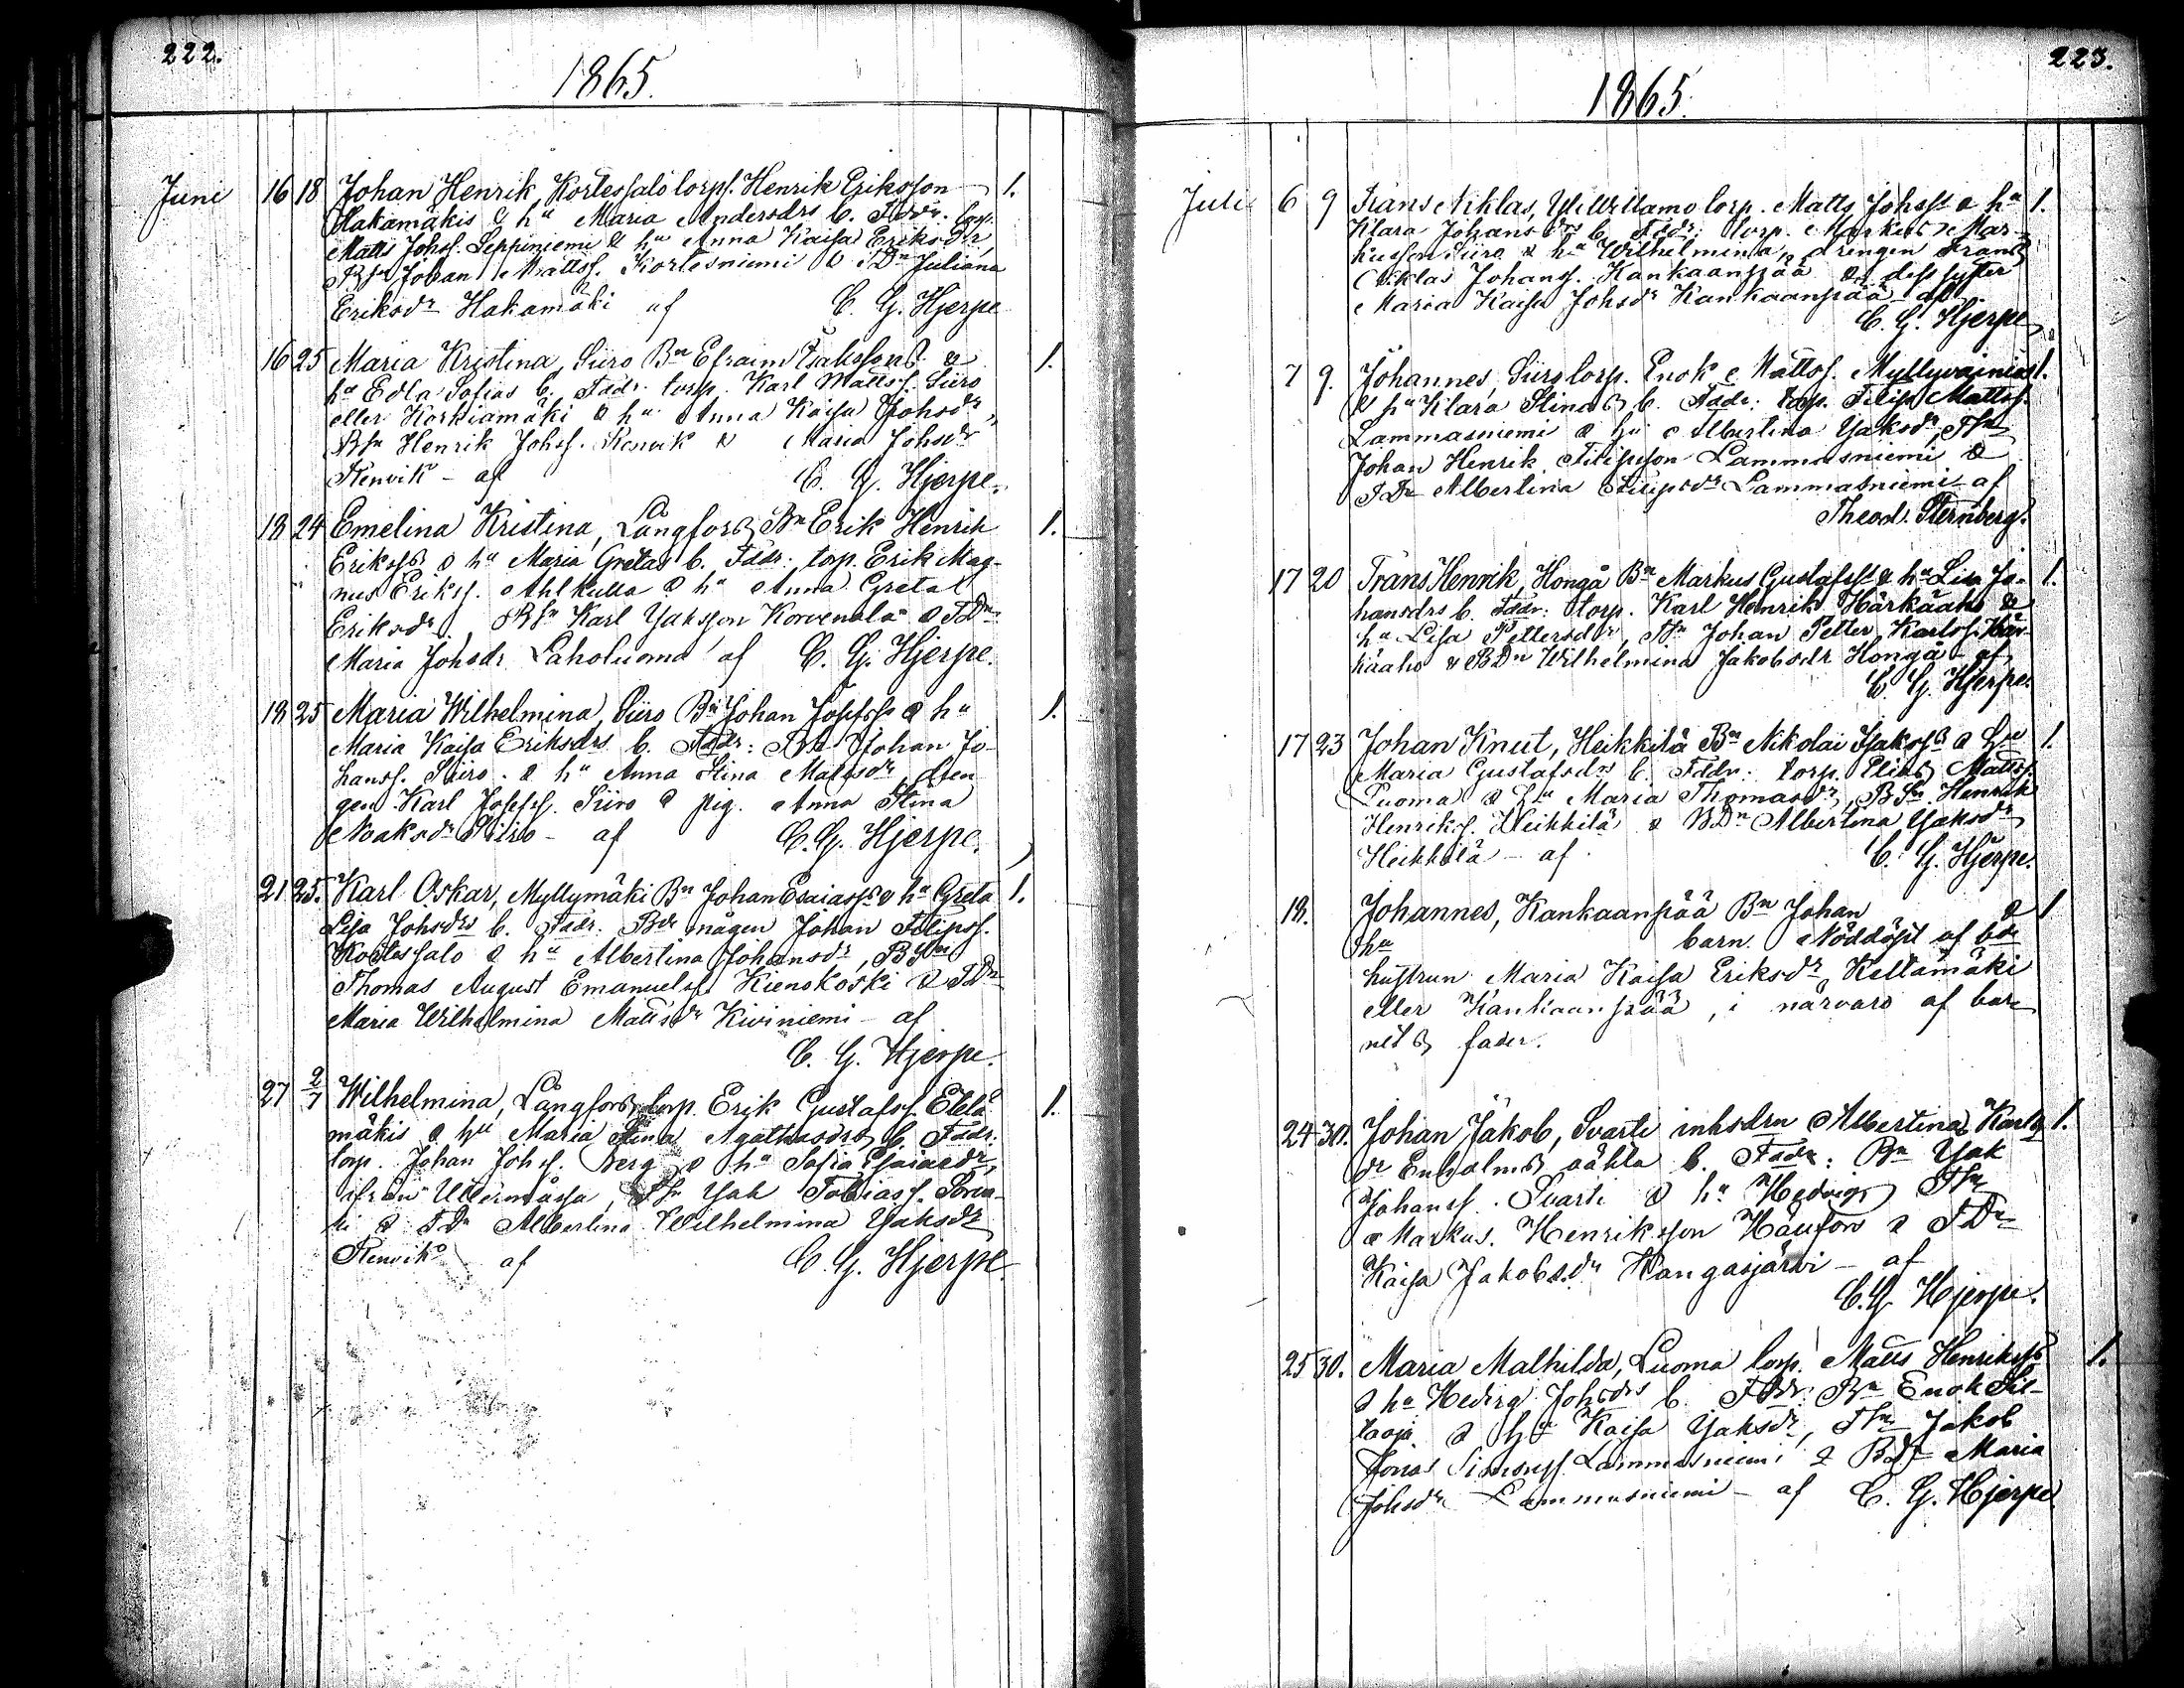 222.
1865.
Juni 16 18 Johan Henrik, Kortessalo torp. Henrik Eriksson 1.
Hakamäkis & hu Maria Andersdrs b. Faddr. torp.
Matts Johss. Seppiniemi & hu Anna Kaisa Eriksdr,
BSn Johan Mattss. Kortesniemi & TDn Juliana
Eriksdr Hakamäki af C. G. Hjerpe
16 25 Maria Kristina, Siiro Bn Efraim Isakssons & 1.
hu Edla Sofias b. Faddr. torp. Karl Mattss. Siiro
eller Korkiamäki & hu Anna Kaisa Johsdr,
BSn Henrik Johss. Renvik & Maria Johsdr
Renvik - af C. G. Hjerpe.
18 24 Emelina Kristina, Långfors Bn Erik Henrik 1.
Erikss & hu Maria Gretas b. Faddr. torp. Erik Mag-
nus Erikss. Ahlkulla & hu Anna Greta
Eriksdr. BSn Karl Jaksson Korvenala & TDn
Maria Johsdr Laholuoma af C. G. Hjerpe.
18 25 Maria Wilhelmina, Siiro Bn Johan Josefss & hu 1.
Maria Kaisa Eriksdrs b. Faddr: Johan Jo-
hanss. Siiro. & hu Anna Stina Mattsdr, dren
gen Karl Josefss. Siiro & pig. Anna Stina
Noaksdr Siiro - af C. G. Hjerpe.
21 25. Karl Oskar, Myllymäki Bn Johan Esaiass & hu Greta 1.
Lisa Johsdrs b. Faddr. Bde mågen Johan Filipss.
Kortessalo & hu Albertina Johansdr, BSn
Thomas August Emanuelss. Kienokoski & TDn
Maria Wilhelmina Mattsdr Kiviniemi - af
C. G. Hjerpe.
27 2/7 Wilhelmina, Långfors torp. Erik Gustafss. Etelä 1.
mäkis & hu Maria Stina Agathusdrs b. Faddr.
torp. Johan Johss. Berg & hu Sofia Esaiasdr,
ifrån Ullermåssa, TSn Jak Tobiass. Soren-
ki & TDn Albertina Wilhelmina Jaksdr
Renvik af C. G. Hjerpe.
223.
1865.
Juli 6 9 Frans Niklas, torp. Matts Johss & hu 1.
Klara Johansdrs b. Faddr: torp. Markus Mar-
kusson Siiro & hu Wilhelmina, drengen Frans
Niklas Johanss. Kankaanpää & dess syster
Maria Kaisa Johsdr Kankaanpää af
C. G. Hjerpe
7 9. Johannes, Siiro torp. Enok Mattss. Myllyvainias 1.
& hu Klara Stinas b. Faddr: torp. Filip Mattss.
Lammasniemi & hu Albertina Jaksdr, TSn
Johan Henrik Filipsson Lammasniemi &
TDn Albertina Filipsdr Lammasniemi af
Theod. Sternberg.
17 20 Frans Henrik, Hongå Bn Markus Gustafss & hu Lisa Jo- 1.
hansdrs b. Faddr: torp. Karl Henrik Härkäaho &
hu Lisa Pettersdr, TSn Johan Petter Karlss. Här-
käaho & BDn Wilhelmina Jakobsdr Hongå - af
C. G. Hjerpe.
17 23 Johan Knut, Heikkilä Bn Nikolai Isakss & hu 1.
Maria Gustafsdrs b. Faddr: torp. Elias Mattss.
Luoma & hu Maria Thomasdr, BSn Henrik
Henrikss. Heikkilä & BDn Albertina Jaksdr
Heikkilä - af C. G. Hjerpe.
18. Johannes, Kankaanpää Bn Johan & 1
hu barn. Nöddöpt af bde
hustrun Maria Kaisa Eriksdr Keltamäki
eller Kankaanpää, i närvaro af bar
nets fader.
24 30. Johan Jakob, Svarti inhsdrn Albertina Karls 1.
dr Enholms oäkta b. Faddr: Bn Jak
Johanss. Svarti & hu Hedvig TSn
Markus Henriksson Häufors & TDn
Kaisa Jakobsdr Kangasjärvi - af
C. G. Hjerpe.
25 30. Maria Mathilda, Luoma torp. Matts Henrikss 1.
& hu Hedvig Johsdrs b. Fddr: Bn Enok Sil-
taoja & hu Kaisa Jaksdr, TSn Jakob
Jonas Simonss. Lammasniemi & BDr Maria
Johsdr Lammasniemi - af C. G. Hjerpe